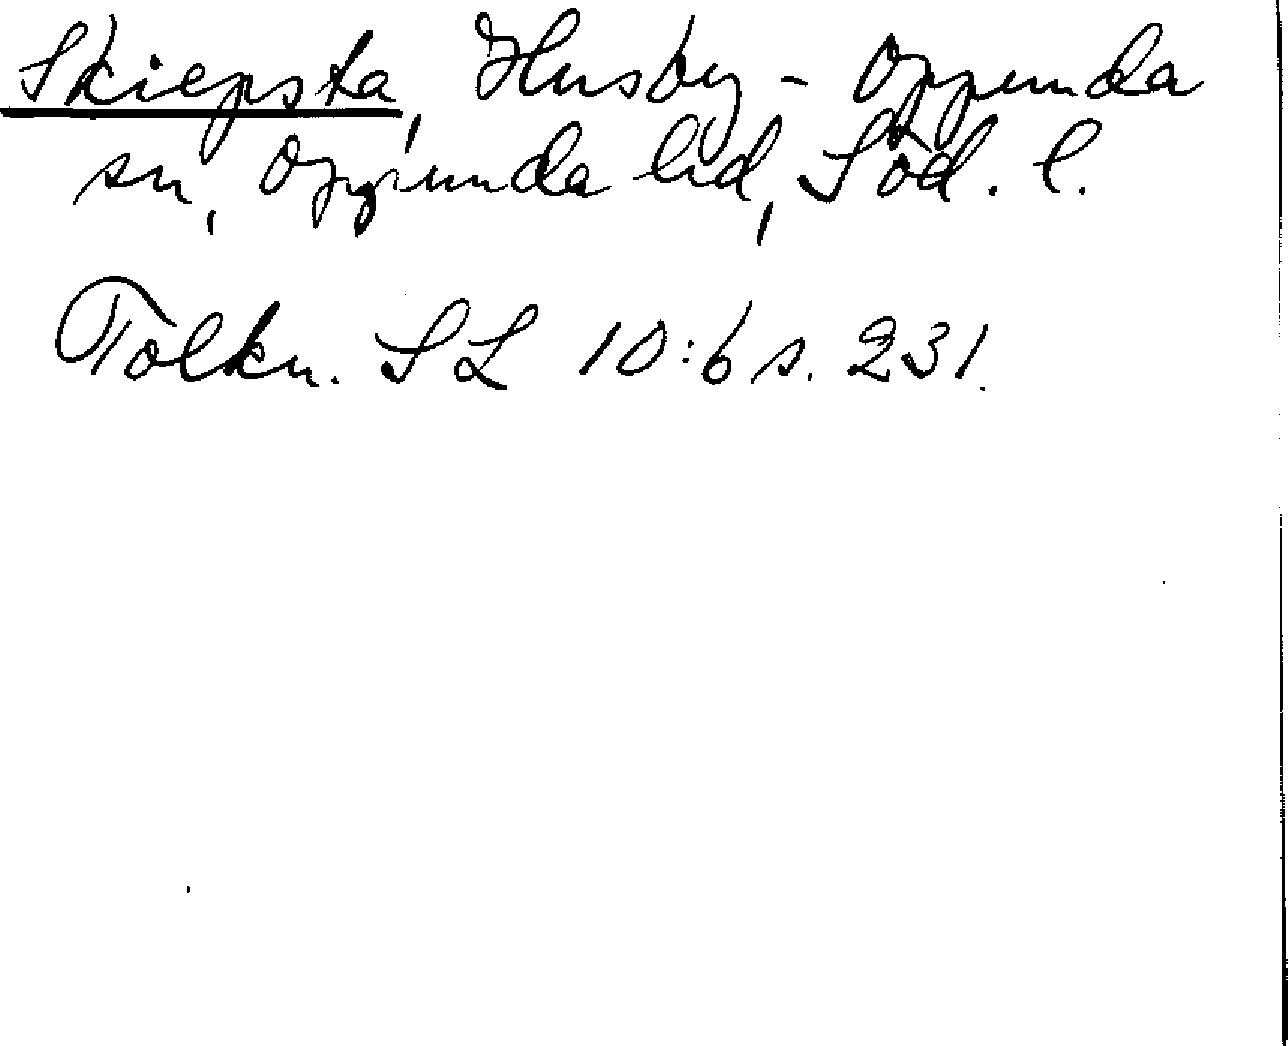 Skiepsta, Husby-Oppunda
sn, Oppunda hd, Söd. l.
Tolkn. SL 10:6 s. 231.